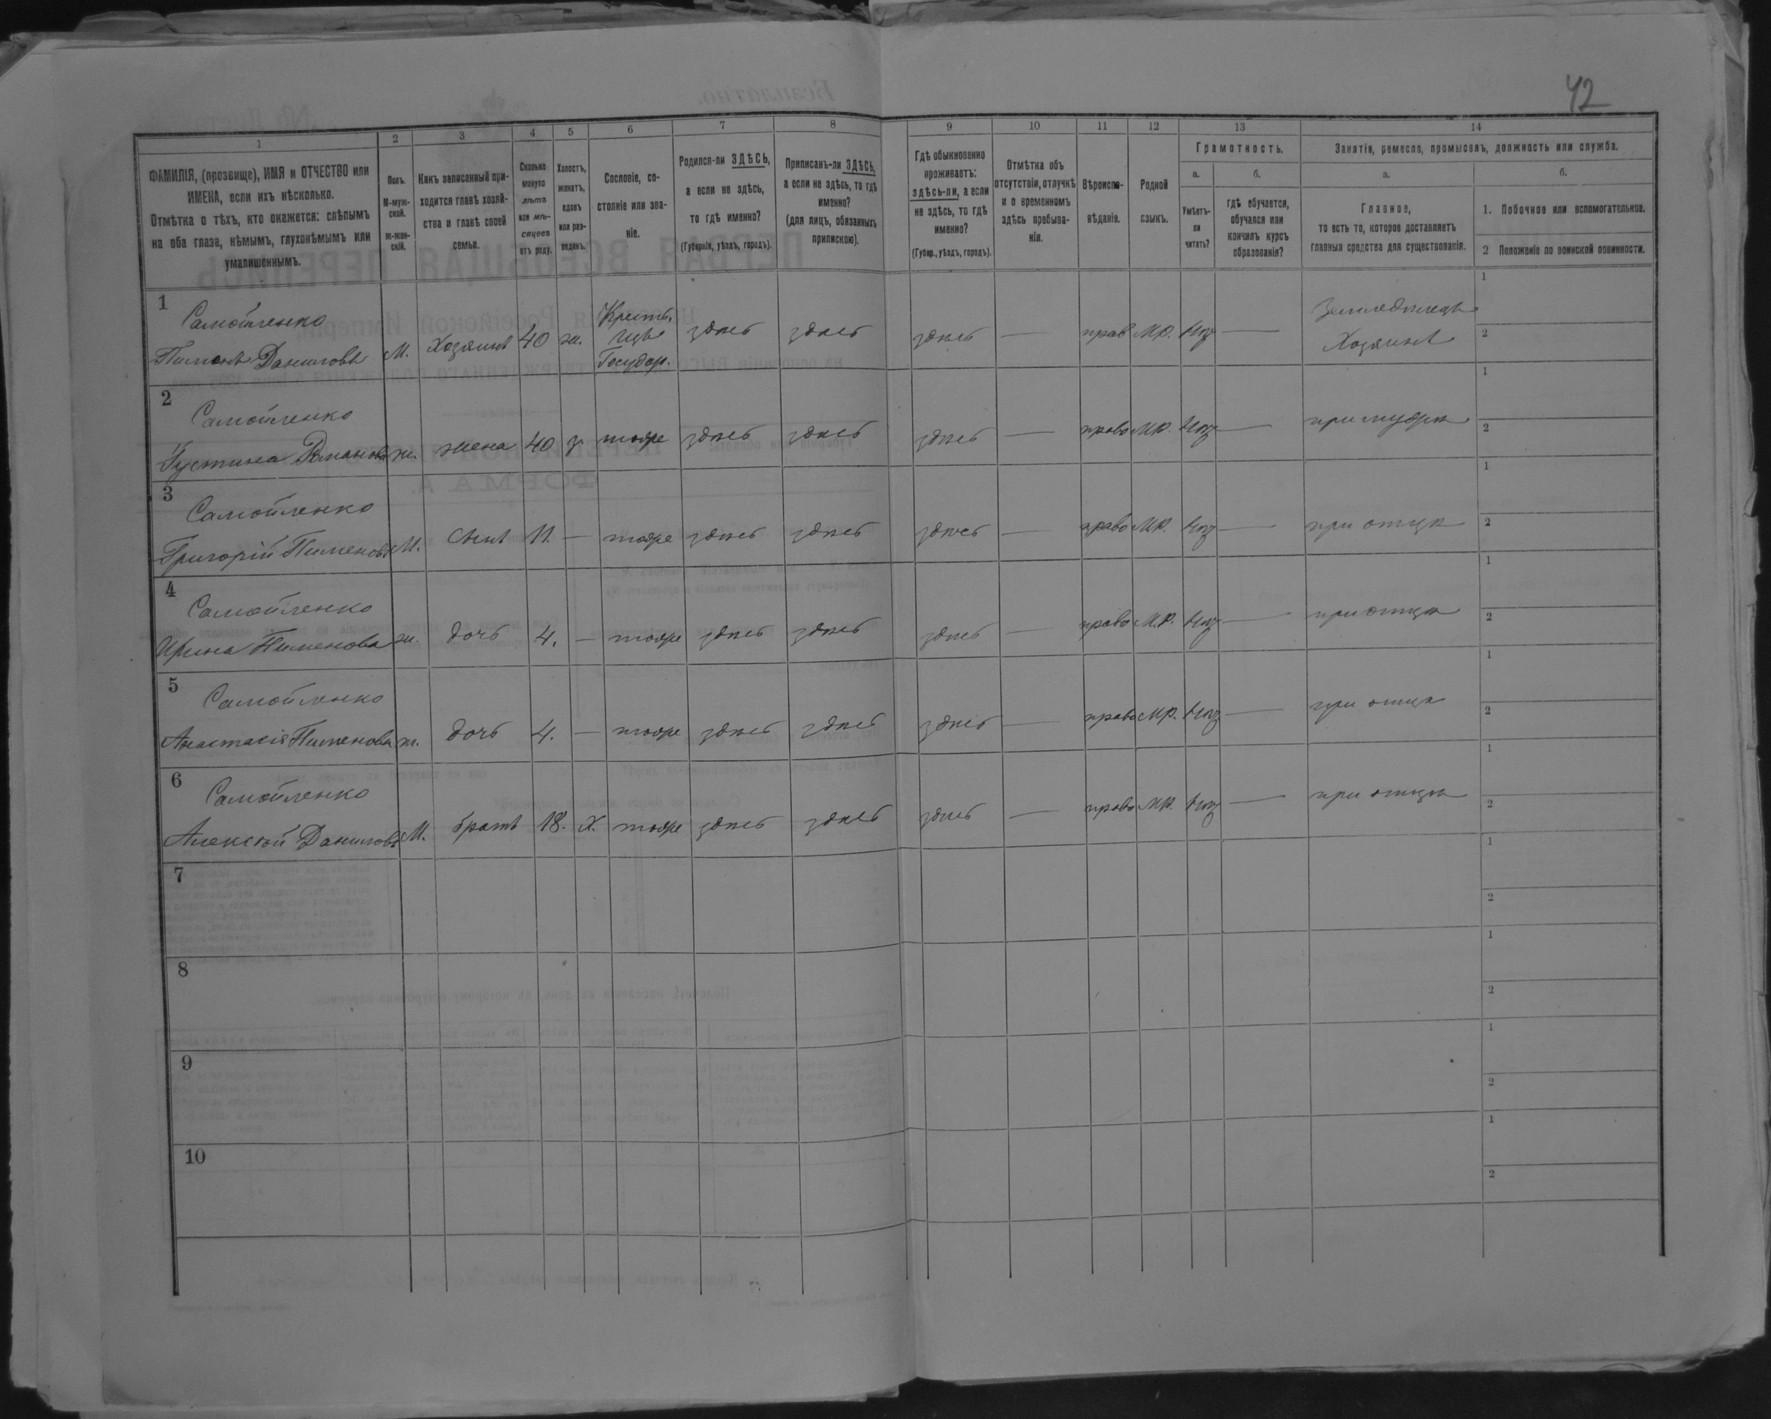 42
1 2 3 4 5 6 7 8 9 10 11 12 13 14
ФАМИЛІЯ, (прозвище), ИМЯ и ОТЧЕСТВО или
ИМЕНА, если ихъ нѣсколько.
Отмѣтка о тѣхъ, кто окажется: слѣпымъ
на оба глаза, нѣмымъ, глухонѣмымъ или
умалишеннымъ.
Полъ.
М-муж-
ской.
ж-жен-
скій.
Какъ записанный при-
ходится главѣ хозяй-
ства и главѣ своей
семьи.
Сколько
минуло
лѣтъ
или мѣ-
сяцевъ
отъ роду.
Холостъ,
женатъ,
вдовъ
или раз-
веденъ.
Сословіе, со-
стояніе или зва-
ніе.
Родился-ли ЗДѢСЬ,
а если не здѣсь,
то гдѣ именно?
(Губернія, уѣздъ, городъ).
Приписанъ-ли ЗДѢСЬ,
а если не здѣсь, то гдѣ
именно?
(для лицъ, обязанныхъ
припискою).
Гдѣ обыкновенно
проживаетъ:
здѣсь-ли, а если
не здѣсь, то гдѣ
именно?
(Губер., уѣздъ, городъ).
Отмѣтка объ
отсутствіи, отлучкѣ
и о временномъ
здѣсь пребыва-
ніи.
Вѣроиспо-
вѣданіе.
Родной
языкъ.
Грамотность.
а.
Умѣетъ-
ли
читать?
б.
гдѣ обучается,
обучался или
кончилъ курсъ
образованія?
Занятіе, ремесло, промыселъ, должность или служба.
а.
Главное,
то есть то, которое доставляетъ
главныя средства для существованія.
б.
1. Побочное или вспомогательное.
2 Положеніе по воинской повинности.
1 Самойленко
Пименъ Даниловъ М. Хозяинъ 40 ж. Крестья. Государ. здѣсь здѣсь здѣсь — прав М.Р. нѣт — Земледѣлецъ Хозяинъ 1 2
2 Самойленко
Густина Романова ж. жена 40 з тоже здѣсь здѣсь здѣсь — право М.Р. нѣт — при мужѣ 1 2
3 Самойленко
Григорій Пименовъ М. сынъ 11. — тоже здѣсь здѣсь здѣсь — право М.Р. нѣт — при отцѣ 1 2
4 Самойленко
Ирина Пименова ж. дочь 4. — тоже здѣсь здѣсь здѣсь — право М.Р. нѣт — при отцѣ 1 2
5 Самойленко
Анастасія Пименова ж. дочь 4. — тоже здѣсь здѣсь здѣсь — право М.Р. нѣт — при отцѣ 1 2
6 Самойленко
Алексѣй Даниловъ М. братъ 18. Х. тоже здѣсь здѣсь здѣсь — право М.Р. нѣт — при отцѣ 1 2
7 1 2
8 1 2
9 1 2
10 1 2